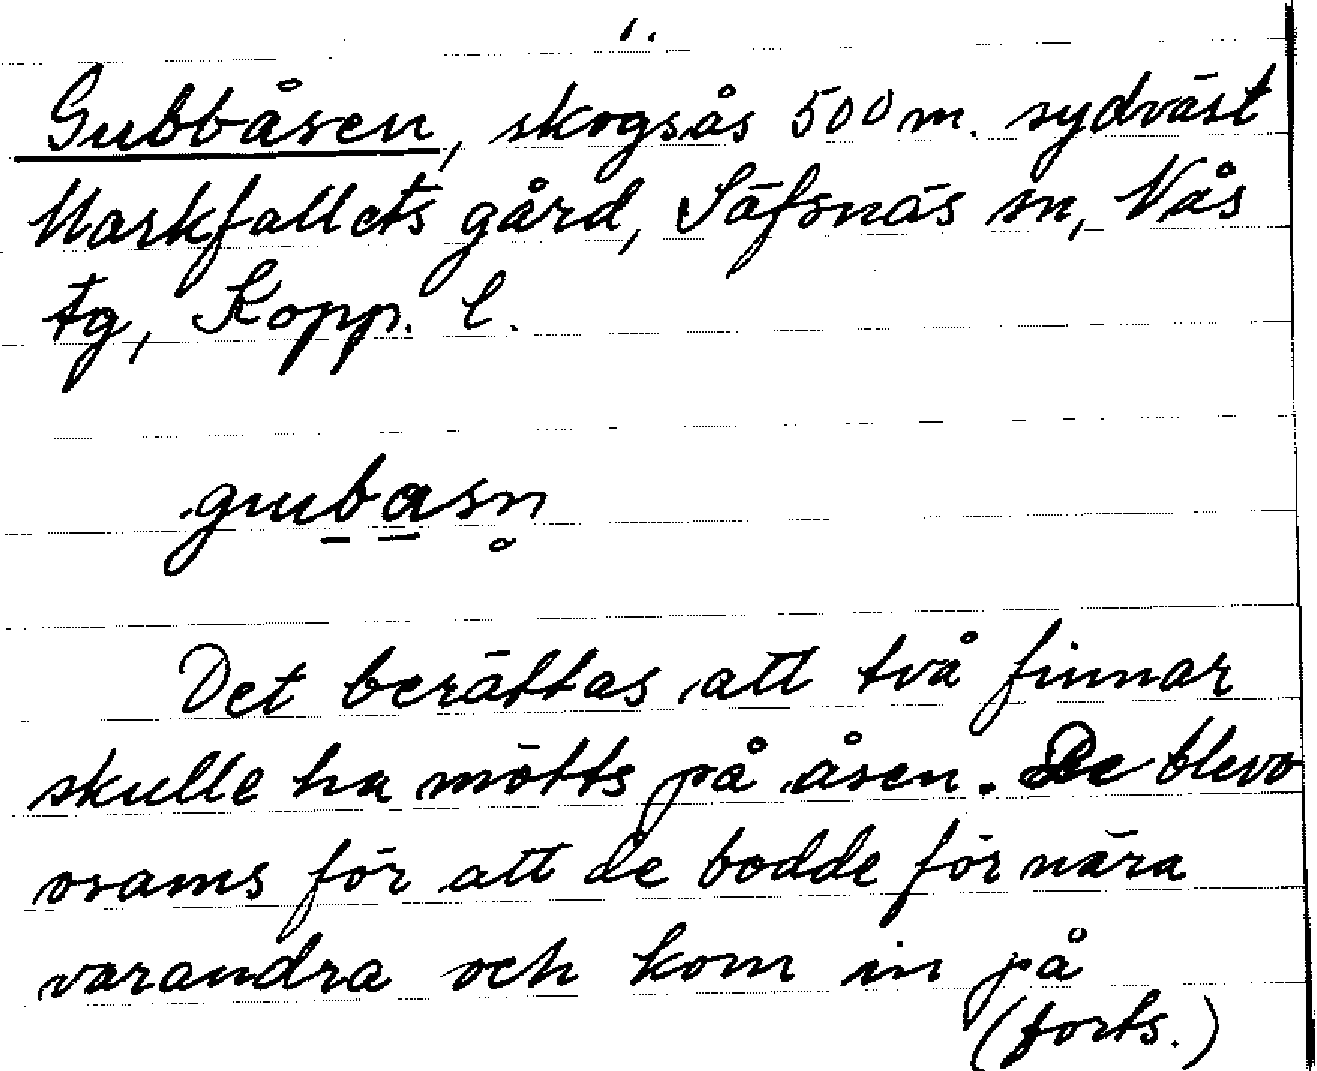 1.
Gubbåsen, skogsås 500 m. sydväst
Markfallets gård, Säfsnäs sn, Nås
tg, Kopp. l.
gubasn
Det berättas att två finnar
skulle ha mötts på åsen. De blevo
osams för att de bodde för nära
varandra och kom in på
(forts.)